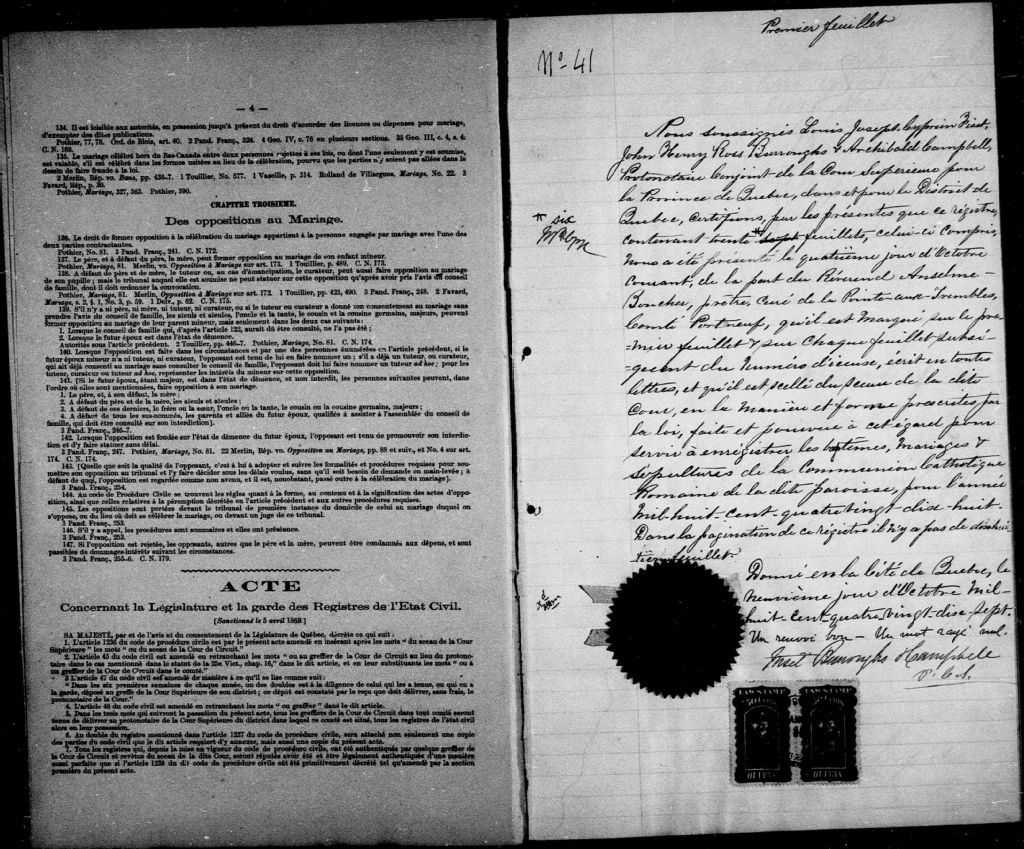 — 4 —
134. Il est loisible aux autorités, en possession jusqu'à présent du droit d'accorder des licences ou dispenses pour mariage,
d'exempter des dites publications.
Pothier, 77, 78. Ord. de Blois, art. 40. 2 Pand. Franç., 324. 4 Geo. IV, c. 76 en plusieurs sections. 35 Geo. III, c. 4, s. 4.
C. N. 169.
135. Le mariage célébré hors du Bas-Canada entre deux personnes sujettes à ses lois, ou dont l'une seulement y est soumise,
est valable, s'il est célébré dans les formes usitées au lieu de la célébration, pourvu que les parties n'y soient pas allées dans le
dessein de faire fraude à la loi.
2 Merlin, Rép. vo. Bans, pp. 434-7. 1 Touillier, No. 577. 1 Vazeille, p. 314. Rolland de Villargues, Mariage, No. 22. 3
Favard, Rép., p. 30.
Pothier, Mariage, 327, 363. Pothier, 390.
CHAPITRE TROISIEME.
Des oppositions au Mariage.
136. Le droit de former opposition à la célébration du mariage appartient à la personne engagée par mariage avec l'une des
deux parties contractantes.
Pothier, No. 81. 3 Pand. Franç., 241. C. N. 172.
137. Le père, et à défaut du père, la mère, peut former opposition au mariage de son enfant mineur.
Pothier, Mariage, 81. Merlin, vo. Opposition à Mariage sur art. 173. 1 Touillier, p. 489. N. 173.
138. A défaut de père et de mère, le tuteur ou, au cas d'émancipation, le curateur, peut aussi faire opposition au mariage
de son pupille; mais le tribunal auquel elle est soumise ne peut statuer sur cette opposition qu'après avoir pris l'avis du conseil
de famille, dont il doit ordonner la convocation.
Pothier, Mariage, 81. Merlin, Opposition à Mariage sur art. 172. 1 Touillier, pp. 425, 490. 3 Pand. Franç., 248. 2 Favard,
Mariage, s. 2, § 1, No. 3, p. 59. 1 Delv., p. 62. C. N. 175.
139. S'il n'y a ni père, ni mère, ni tuteur, ni curateur, ou si le tuteur ou curateur a donné son consentement au mariage sans
prendre l'avis du conseil de famille, les aïeuls et aïeules, l'oncle et la tante, le cousin et la cousine germains, majeurs, peuvent
former opposition au mariage de leur parent mineur, mais seulement dans les deux cas suivants:
1. Lorsque le conseil de famille qui, d'après l'article 122, aurait dû être consulté, ne l'a pas été;
2. Lorsque le futur époux est dans l'état de démence.
Autorités sous l'article précédent. 2 Touillier, pp. 446-7. Pothier, Mariage, No. 81. C. N. 174.
140. Lorsque l'opposition est faite dans les circonstances et par une des personnes énoncées en l'article précédent, si le
futur époux mineur n'a ni tuteur, ni curateur, l'opposant est tenu de lui en faire nommer un; s'il a déjà un tuteur, ou curateur,
qui ait déjà consenti au mariage sans consulter le conseil de famille, l'opposant doit lui faire nommer un tuteur ad hoc; pour les
tuteur, curateur ou tuteur ad hoc, représenter les intérêts du mineur sur cette opposition.
141. [Si le futur époux, étant majeur, est dans l'état de démence, et non interdit, les personnes suivantes peuvent, dans
l'ordre où elles sont mentionnées, faire opposition à son mariage:
1. Le père, et, à son défaut, la mère;
2. A défaut du père et de la mère, les aïeuls et aïeules;
3. A défaut de ces derniers, le frère ou la sœur, l'oncle ou la tante, le cousin ou la cousine germains, majeurs;
4. A défaut de tous les sus-nommés, les parents et alliés du futur époux, qualifiés à assister à l'assemblée du conseil de
famille, qui doit être consulté sur son interdiction].
3 Pand. Franç., 246-7.
142. Lorsque l'opposition est fondée sur l'état de démence du futur époux, l'opposant est tenu de promouvoir son interdic-
tion et d'y faire statuer sans délai.
3 Pand. Franç., 247. Pothier, Mariage, No. 81. 22 Merlin, Rép. vo. Opposition au Mariage, pp. 88 et suiv., et No. 4 sur art.
174. C. N. 174.
143. [Quelle que soit la qualité de l'opposant, c'est à lui à adopter et suivre les formalités et procédures requises pour sou-
mettre son opposition au tribunal et l'y faire décider sous les délais voulus, sans qu'il soit besoin de demande en main-levée; à
défaut de quoi, l'opposition est regardée comme non avenu, et il est, nonobstant, passé outre à la célébration du mariage].
3 Pand. Franç., 254.
144. Au code de Procédure Civile se trouvent les règles quant à la forme, au contenu et à la signification des actes d'oppo-
sition, ainsi que celles relatives à la péremption décrétée en l'article précédent et aux autres procédures requises.
145. Les oppositions sont portées devant le tribunal de première instance du domicile de celui au mariage duquel on
s'oppose, ou du lieu où doit se célébrer le mariage, ou devant un juge de ce tribunal.
3 Pand. Franç., 253.
146. S'il y a appel, les procédures sont sommaires et elles ont préséance.
3 Pand. Franç., 253.
147. Si l'opposition est rejetée, les opposants, autres que le père et la mère, peuvent être condamnés aux dépens, et sont
passibles de dommages-intérêts suivant les circonstances.
3 Pand. Franç., 255-6. C. N. 179.
ACTE
Concernant la Législature et la garde des Registres de l'Etat Civil.
[Sanctionné le 5 avril 1869.]
SA MAJESTÉ, par et de l'avis et du consentement de la Législature de Québec, décrète ce qui suit:
1. L'article 1236 du code de procédure civile est par le présent acte amendé en insérant après les mots "du sceau de la Cour
Supérieure" les mots "ou du sceau de la Cour de Circuit."
2. L'article 45 du code civil est amendé en retranchant les mots "ou au greffier de la Cour de Circuit au lieu du protono-
taire dans le cas mentionné dans le statut de la 25e Vict., chap. 16," dans le dit article, et en leur substituants les mots "ou à
un greffier de la Cour de Circuit dans le comté."
3 L'article 47 du code civil est amendé de manière à ce qu'il se lise comme suit:
"Dans les six premières semaines de chaque année, un des doubles est à la diligence de celui qui les a tenus, ou qui en a
la garde, déposé au greffe de la Cour Supérieure de son district; ce dépôt est constaté par le reçu que doit délivrer, sans frais, le
protonotaire de la Cour."
4. L'article 48 du code civil est amendé en retranchant les mots "ou greffier" dans le dit article.
5. Dans les trois mois qui suivront la passation du présent acte, tous les greffiers de la Cour de Circuit dans tout comté seront
tenus de délivrer au protonotaire de la Cour Supérieure du district dans lequel ce comté est situé, tous les registres de l'état civil
alors en leur possession.
6. Au double du registre mentionné dans l'article 1227 du code de procédure civile, sera attaché non seulement une copie
des parties du code civil que le dit article requiert d'y annexer, mais aussi une copie du présent acte.
7. Tous les registres qui, depuis la mise en vigueur du code de procédure civile, ont été authentiqués par quelque greffier de
la Cour de Circuit et revêtus du sceau de la dite Cour, seront réputés avoir été et être légalement authentiqués d'une manière
aussi parfaite que si l'article 1236 du dit code de procédure civile eût été primitivement décrété tel qu'amendé par la section
première du présent acte.
Premier feuillet
No. 41
Nous soussignés Louis Joseph Cyprien Fiset,
John Henry Ross Burroughs & Archibald Campbell,
Protonotaire Conjoint de la Cour Supérieure pour
la Province de Quebec, dans et pour le District de
Quebec, Certifions, par les présentes que ce régistre,
contenant trente * sept feuillets, celui-ci Compris,
* six
Nous a été présenté le quatrième jour d'Octobre
Courant, de la part du Révérend Anselme
Boucher, prêtre, Curé de la Pointe-aux-Trembles,
Comté Portneuf, qu'il est Marqué sur le pre-
=mier feuillet & sur Chaque feuillet subsé-
=quent du Numéro d'iceux, écrit en toutes
lettres, et qu'il est scellé du Sceau de la dite
Cour, en la Manière et forme prescrites par
la loi, faite et pourvue à cet égard pour
servir à enregistrer les batêmes, Mariages &
Sépultures de la Communion Catholique
Romaine de la dite paroisse, pour l'année
Mil-huit-cent-quatre-vingt-dix-huit.
Dans la pagination de ce régistre il n'y a pas de
feuillet.
Donné en la Cité de Quebec, le
Neuvième jour d'Octobre Mil-
huit-cent-quatre-vingt-dix-sept.
Un renvoi bon - Un mot rayé nul.
Fiset Burroughs & Campbell
P.C.S.
LAW STAMP LAW STAMP
QUEBEC QUEBEC